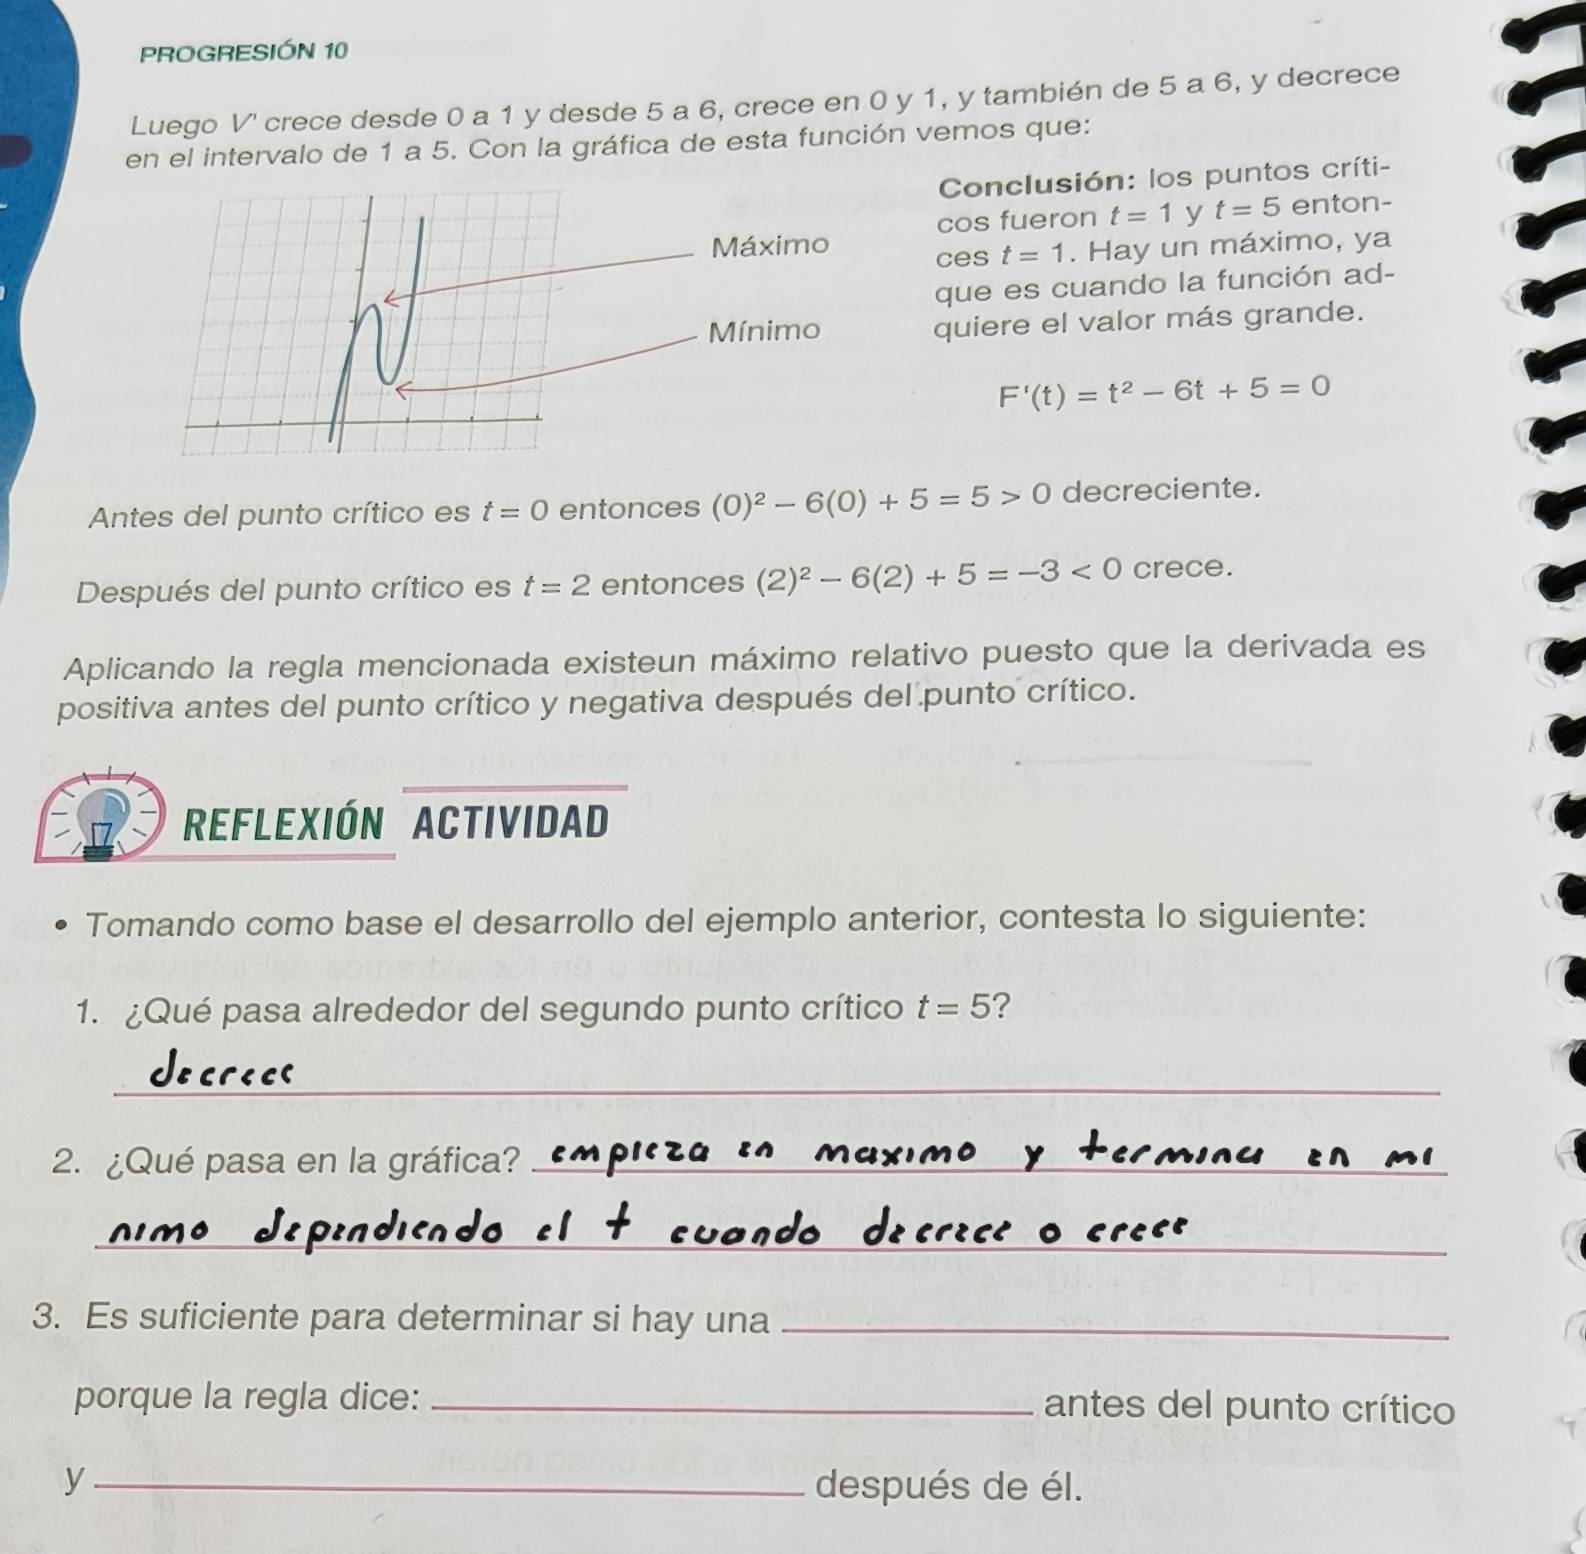 PROGRESIÓN 10
Luego V' crece desde 0 a 1 y desde 5 a 6, crece en 0 y 1, y también de 5 a 6, y decrece
en el intervalo de 1 a 5. Con la gráfica de esta función vemos que:
Máximo
Mínimo
Conclusión: los puntos críti-
cos fueron t = 1 y t = 5 enton-
ces t = 1. Hay un máximo, ya
que es cuando la función ad-
quiere el valor más grande.
F'(t) = t² − 6t + 5 = 0
Antes del punto crítico es t = 0 entonces (0)² − 6(0) + 5 = 5 > 0 decreciente.
Después del punto crítico es t = 2 entonces (2)² − 6(2) + 5 = −3 < 0 crece.
Aplicando la regla mencionada existeun máximo relativo puesto que la derivada es
positiva antes del punto crítico y negativa después del punto crítico.
REFLEXIÓN ACTIVIDAD
• Tomando como base el desarrollo del ejemplo anterior, contesta lo siguiente:
1. ¿Qué pasa alrededor del segundo punto crítico t = 5?
decrece
2. ¿Qué pasa en la gráfica? empieza en maximo y termina en mi
nimo dependiendo el t cuando decrece o crece
3. Es suficiente para determinar si hay una
porque la regla dice: antes del punto crítico
y después de él.